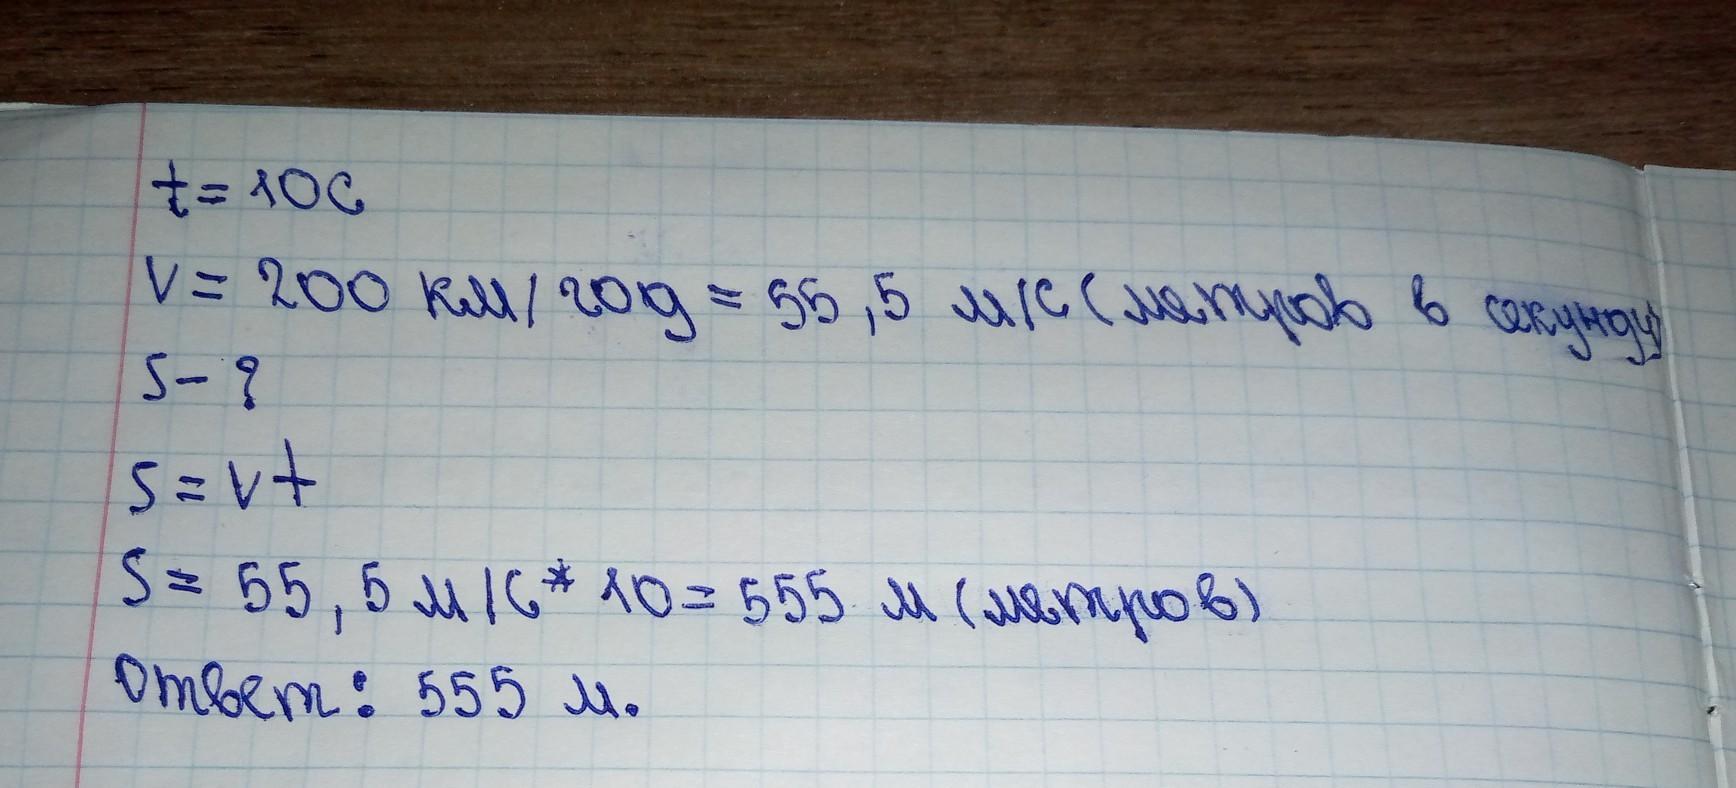 t = 10 с
v = 200 км/год = 55,5 м/с (метров в секунду)
S - ?
S = vt
S = 55,5 м/с * 10 = 555 м (метров)
Ответ: 555 м.